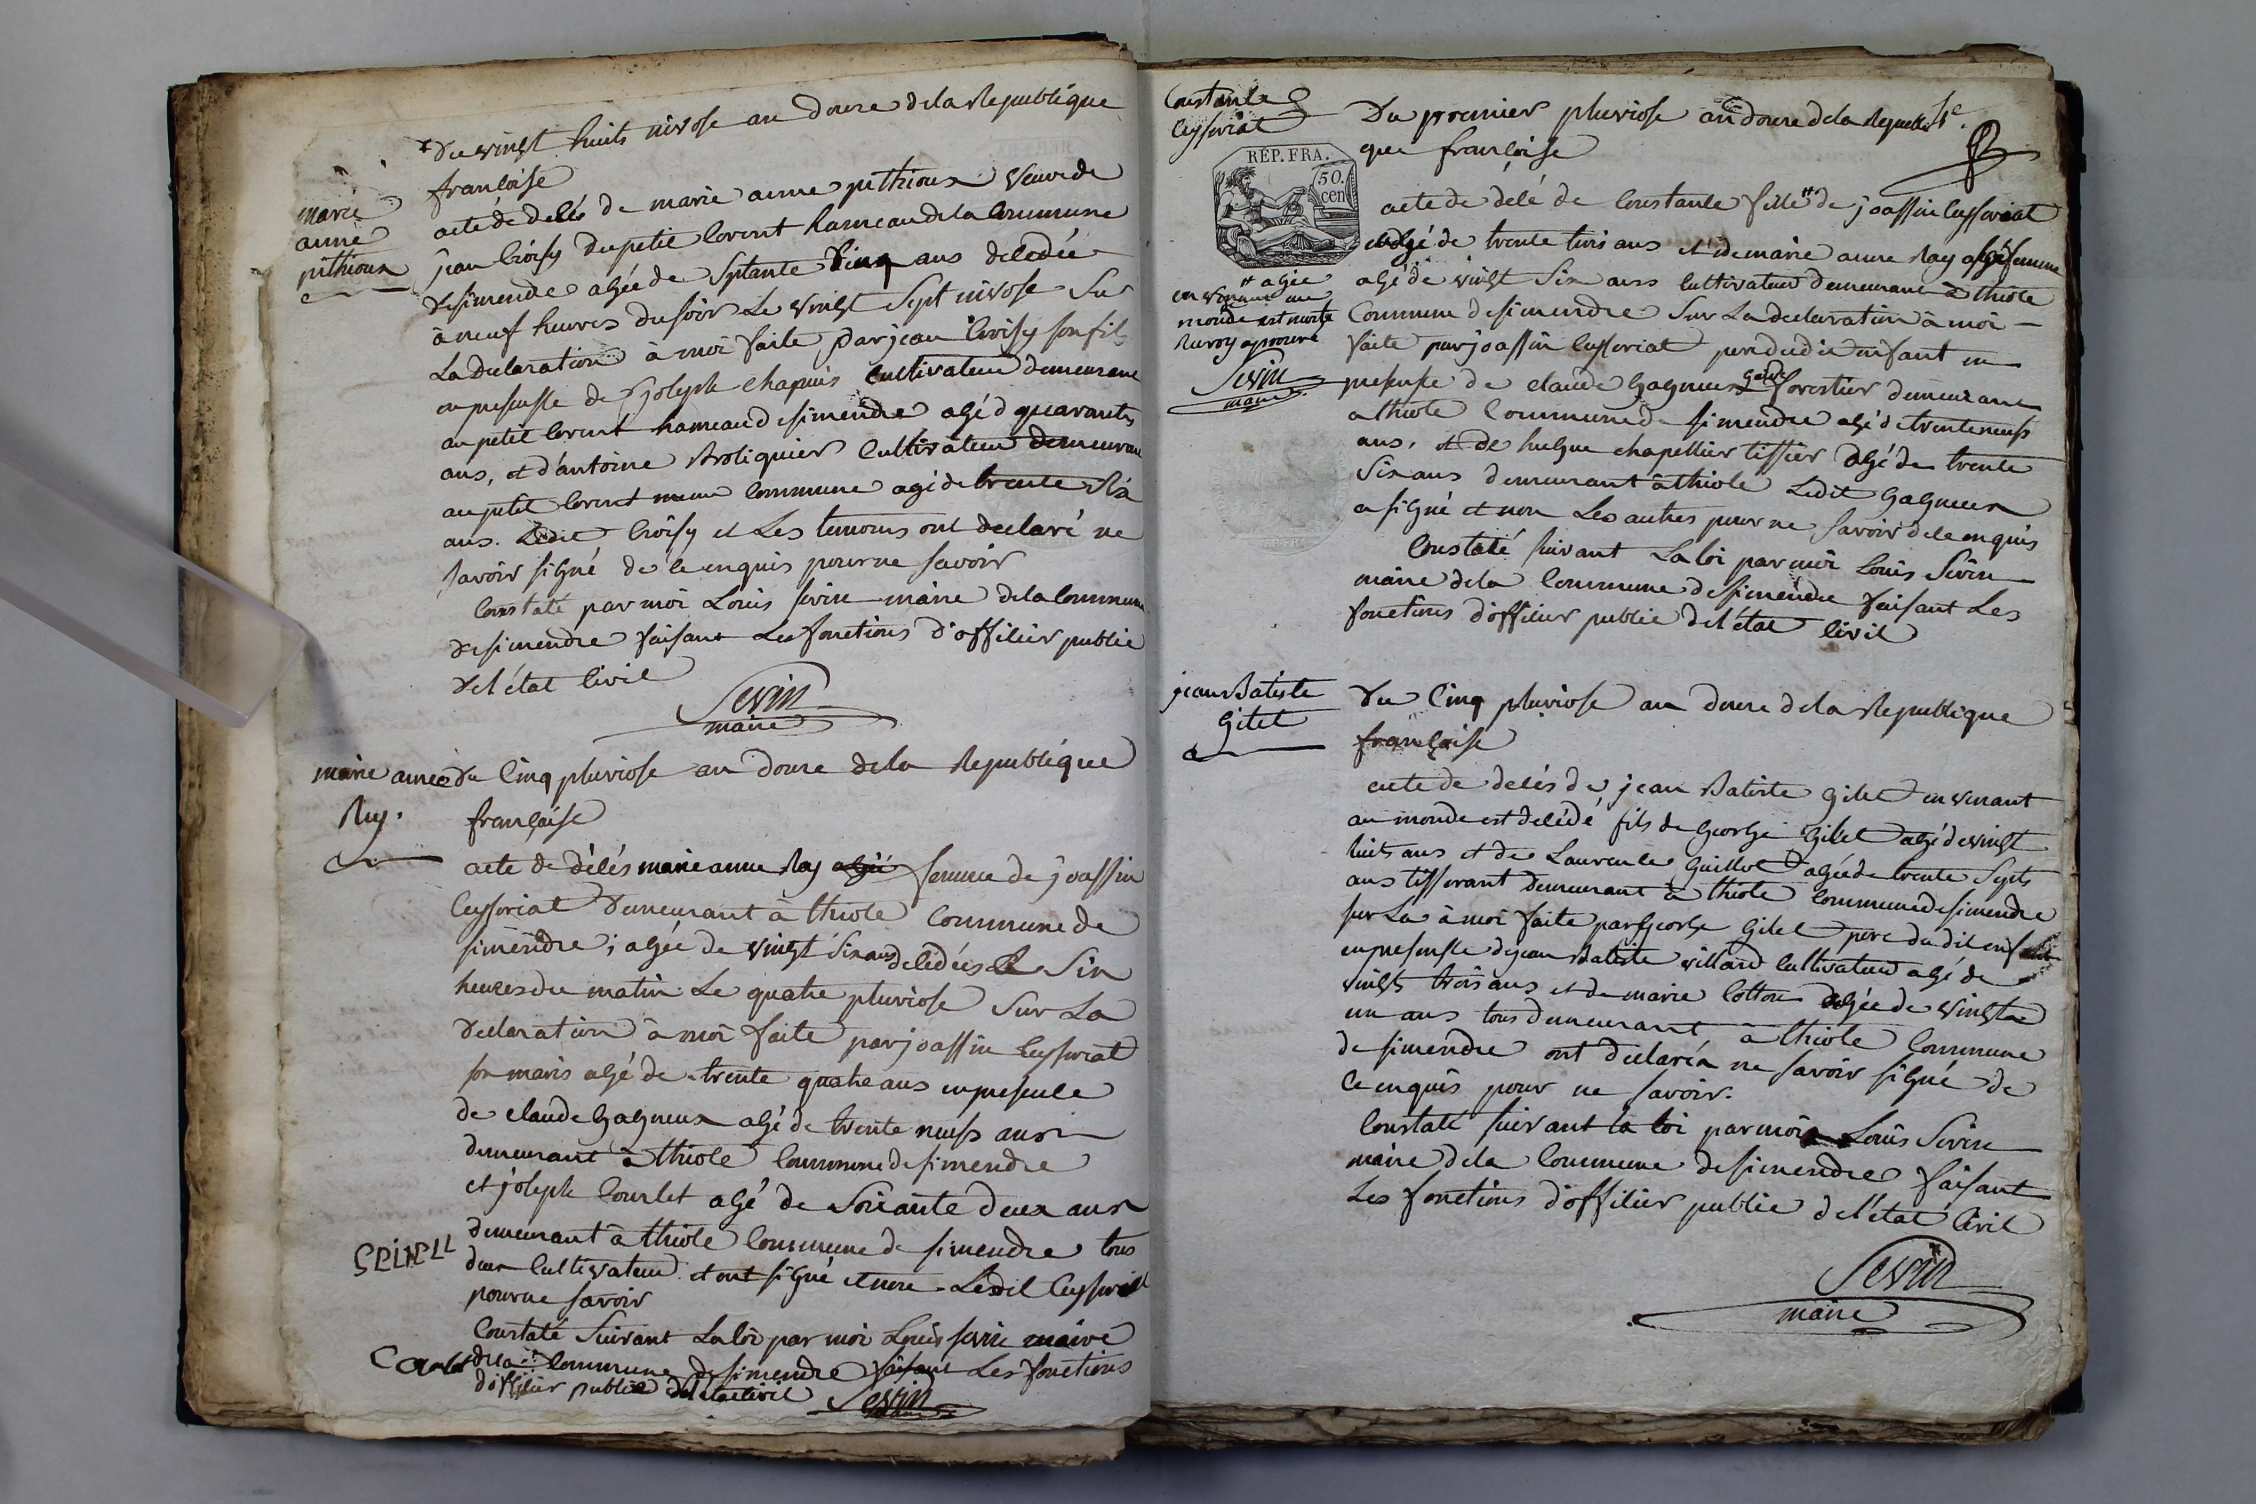 Du vingt huits nivose an douze de la Republique
françoise
marie
anne
pithioux
acte de décés de marie anne pithioux veuve de
jean Croisy du petit Corent hameau de la Commune
de simendre agée de septante Cinq ans decedée
à neuf heures du soir Le vingt sept nivose Sur
La declaration à moi faite par jean Croisy son fils
en presensse de joseph chapuis cultivateur demeurant
au petit Corent hameau de simendre agé d quarante
ans, et d'antoine Broliquier Cultivateur demeurant
au petit Corent meme Commune agé de trente six
ans. Ledit Croisy et Les temoins ont declaré ne
savoir signé de ce enquis pour ne savoir
Constaté par moi Louis sevin maire de la Commune
de simendre faisant Les fonctions d'officier public
de l'état Civil
Sevin
maire
marie anne
Ray.
Du Cinq pluviose an douze de la Republique
françaisse
acte de décés marie anne Ray agée femme de joassin
Ceyssoriat Demeurant à thiole Commune de
simendre ; agée de vingt Six ans decedées Le Six
heures du matin Le quatre pluviose Sur La
declaration à moi faite par joassin Ceyssoriat
son maris agé de trente quatre ans en presence
de claude Gagneux agé de trente neufs ans
demeurant à thiole Commune de simendre
et joseph Courlet agé de Soixante deux ans
demeurant à thiole Commune de simendre tous
deux Cultivateur et ont signé et non Ledit Ceyssoriat
pour ne savoir
Constaté Suivant La loi par moi Louis sevin maire
de la Commune de simendre faisant Les fonctions
d'officier public de l'état Civil Sevin
maire
Constante
Ceyssoriat
RÉP. FRA.
50.
cen
# agée
en venant au
monde est morte
Sevin
maire
Du premier pluviose an douze de la Republi
que françoise
acte de décé de Constante fille # de joassin Ceyssoriat
agé de trente trois ans et de marie anne Ray sa femme
agé de vingt Six ans Cultivateur demeurant à thiole
Commune de simendre Sur La declaration à moi
faite par joassin Ceyssoriat pere du dit enfant en
presensse de claude Gagneux garde forestier demeurant
a thiole Commune de simendre agé de trente neufs
ans, et de hugue chapellier tissier agé de trente
Six ans demeurant à thiole Ledit Gagneux
a signé et non Les autres pour ne savoir de ce enquis
Constaté suivant La loi par moi Louis Sevin
maire de la Commune de simendre faisant Les
fonctions d'officier public de l'état Civil
jean Batiste
Gilet
Du Cinq pluviose an douze de la Republique
françoise
acte de decés de jean Batiste Gilet en venant
au monde est decédé fils de George Gilet agé de vingt
huits ans et de Laurence Guillot agée de trente Septs
ans tisserant demeurant à thiole Commune de simendre
sur La à moi faite par George Gilet pere du dit enfant
en presensse de jean Batiste villard Cultivateur agé de
vingts trois ans et de marie Cotton agée de vingt
un ans tous demeurant à thiole Commune
de simendre ont declaré ne savoir signé de
ce enquis pour ne savoir.
Constaté suivant la loi par moi Louis Sevin
maire de la Commune de simendre faisant
Les fonctions d'officier public de l'état Civil
Sevin
maire